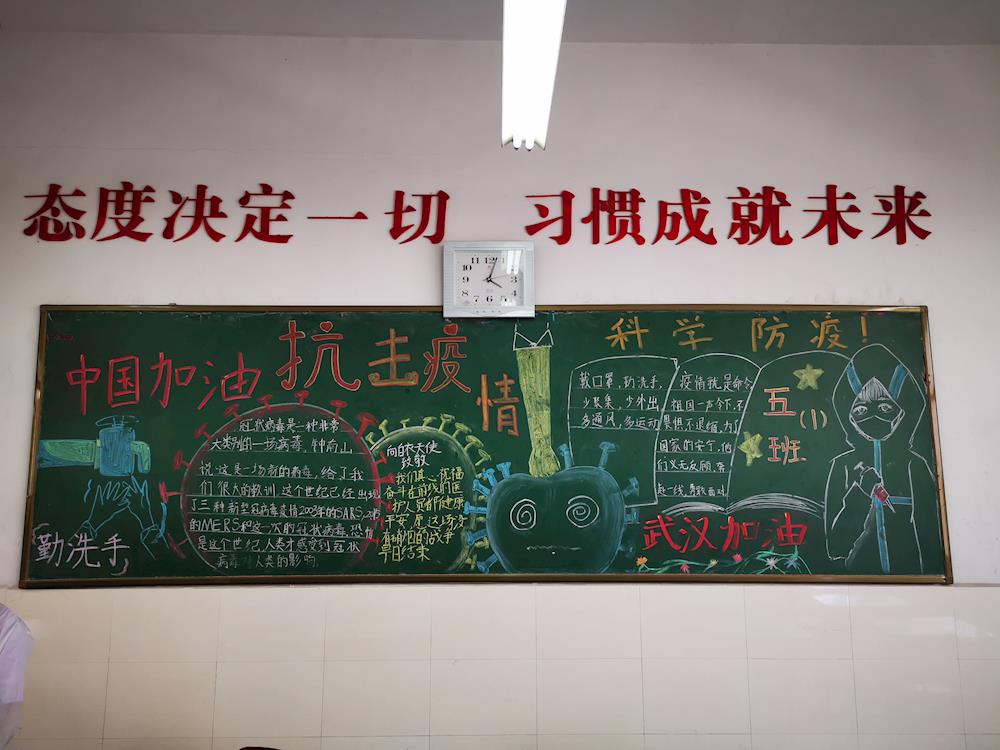 态度决定一切 习惯成就未来
11 12 1
10 2
9 3
8 4
7 6 5
中国加油
抗击疫情
科学防疫!
冠状病毒是一种非常
大类别的一场病毒,钟南山
说:这是一场新的病毒,给了我
们很大的教训,这个世纪已经出现
了三种新型冠病毒疫情2003年的SARS
的MERS和这一次的冠状病毒,恐怕
是这个世纪人类才感受到冠状
病毒对人类的影响。
向白衣天使
致敬
我们真心祝福
奋斗在前线们医
护人员都健康
平安,愿这场没
有硝烟的战争
早日结束
戴口罩,勤洗手,
少聚集,少外出
多通风,多运动
疫情就是命令
祖国一声令下,不
畏惧不退缩,为了
国家的安宁,他
们义无反顾,奔
赴一线,勇敢面对
五(1)
班
武汉加油
勤洗手